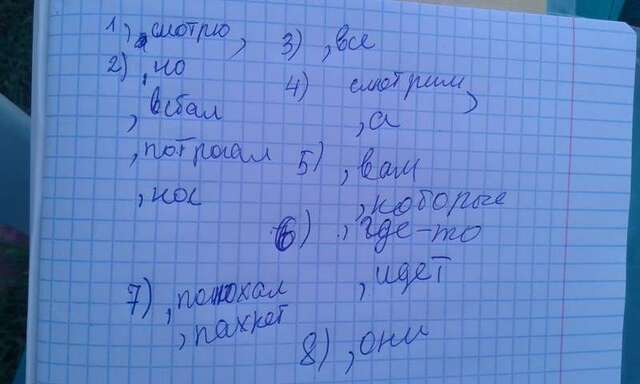 1) , смотрю ,
2) , но
, встал
, потрогал
, нос
3) , все
4) смотрим ,
, а
5) , вам
, которые
6) , где-то
, идет
7) , понюхал
, пахнет
8) , они